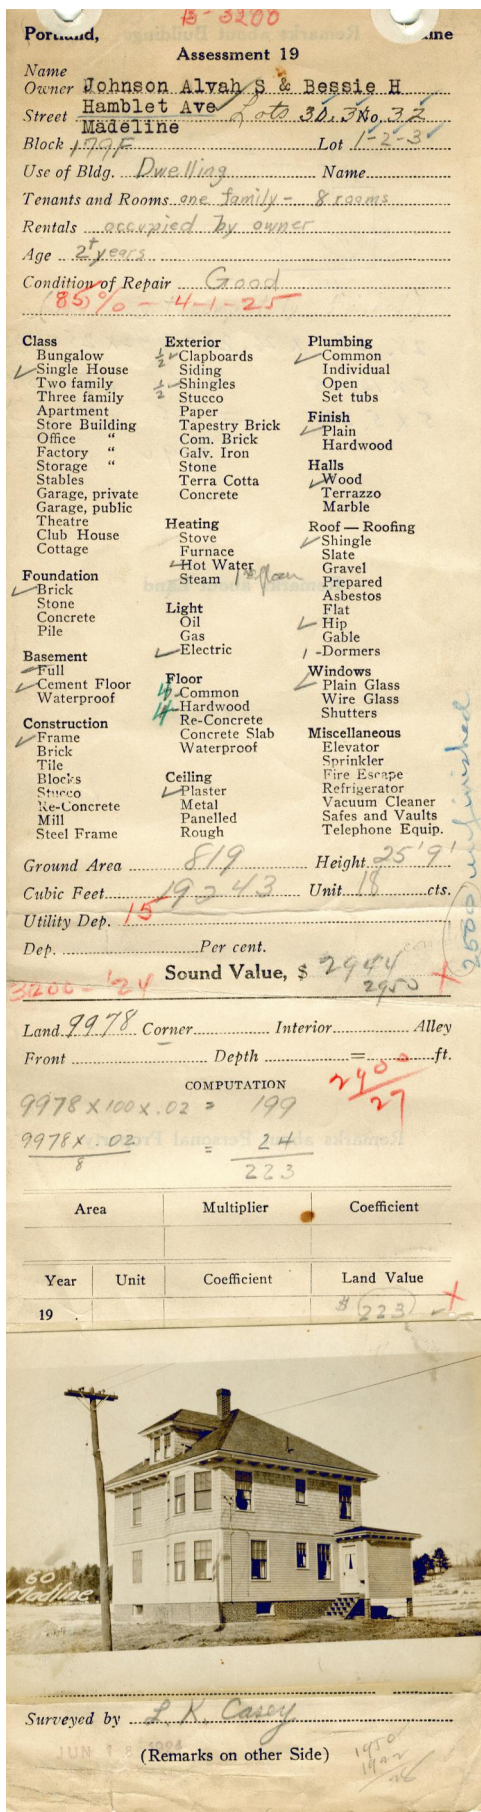 B-3200
Portland, ine
Assessment 19
Name
Owner Johnson Alvah S & Bessie H
Street Hamblet Ave Lots 30, 31 No. 32
Madeline
Block 179F Lot 1-2-3
Use of Bldg. Dwelling Name
Tenants and Rooms one family - 8 rooms
Rentals occupied by owner
Age 2+ years
Condition of Repair Good
(85)% - 4-1-25
Class
Bungalow
Single House
Two family
Three family
Apartment
Store Building
Office "
Factory "
Storage "
Stables
Garage, private
Garage, public
Theatre
Club House
Cottage
Foundation
Brick
Stone
Concrete
Pile
Basement
Full
Cement Floor
Waterproof
Construction
Frame
Brick
Tile
Blocks
Stucco
Re-Concrete
Mill
Steel Frame
Exterior
1/2 Clapboards
Siding
1/2 Shingles
Stucco
Paper
Tapestry Brick
Com. Brick
Galv. Iron
Stone
Terra Cotta
Concrete
Heating
Stove
Furnace
Hot Water
Steam 1st floor
Light
Oil
Gas
Electric
Floor
4 Common
4 Hardwood
Re-Concrete
Concrete Slab
Waterproof
Ceiling
Plaster
Metal
Panelled
Rough
Plumbing
Common
Individual
Open
Set tubs
Finish
Plain
Hardwood
Halls
Wood
Terrazzo
Marble
Roof — Roofing
Shingle
Slate
Gravel
Prepared
Asbestos
Flat
Hip
Gable
1 - Dormers
Windows
Plain Glass
Wire Glass
Shutters
Miscellaneous
Elevator
Sprinkler
Fire Escape
Refrigerator
Vacuum Cleaner
Safes and Vaults
Telephone Equip.
2500 unfinished
Ground Area 819 Height 25'9'
Cubic Feet 19243 Unit 18 cts.
Utility Dep. 15
Dep. Per cent.
Sound Value, $ 2944
3200 - '24 2950
Land 9978 Corner Interior Alley
Front Depth = ft.
COMPUTATION
2900
27
9978 X 100 X .02 = 199
9978 X .02 = 24
8
223
Area Multiplier Coefficient
Year Unit Coefficient Land Value
19 $ 223
60
Madline
Surveyed by L. K. Casey
JUN 18 1924
(Remarks on other Side)
1950